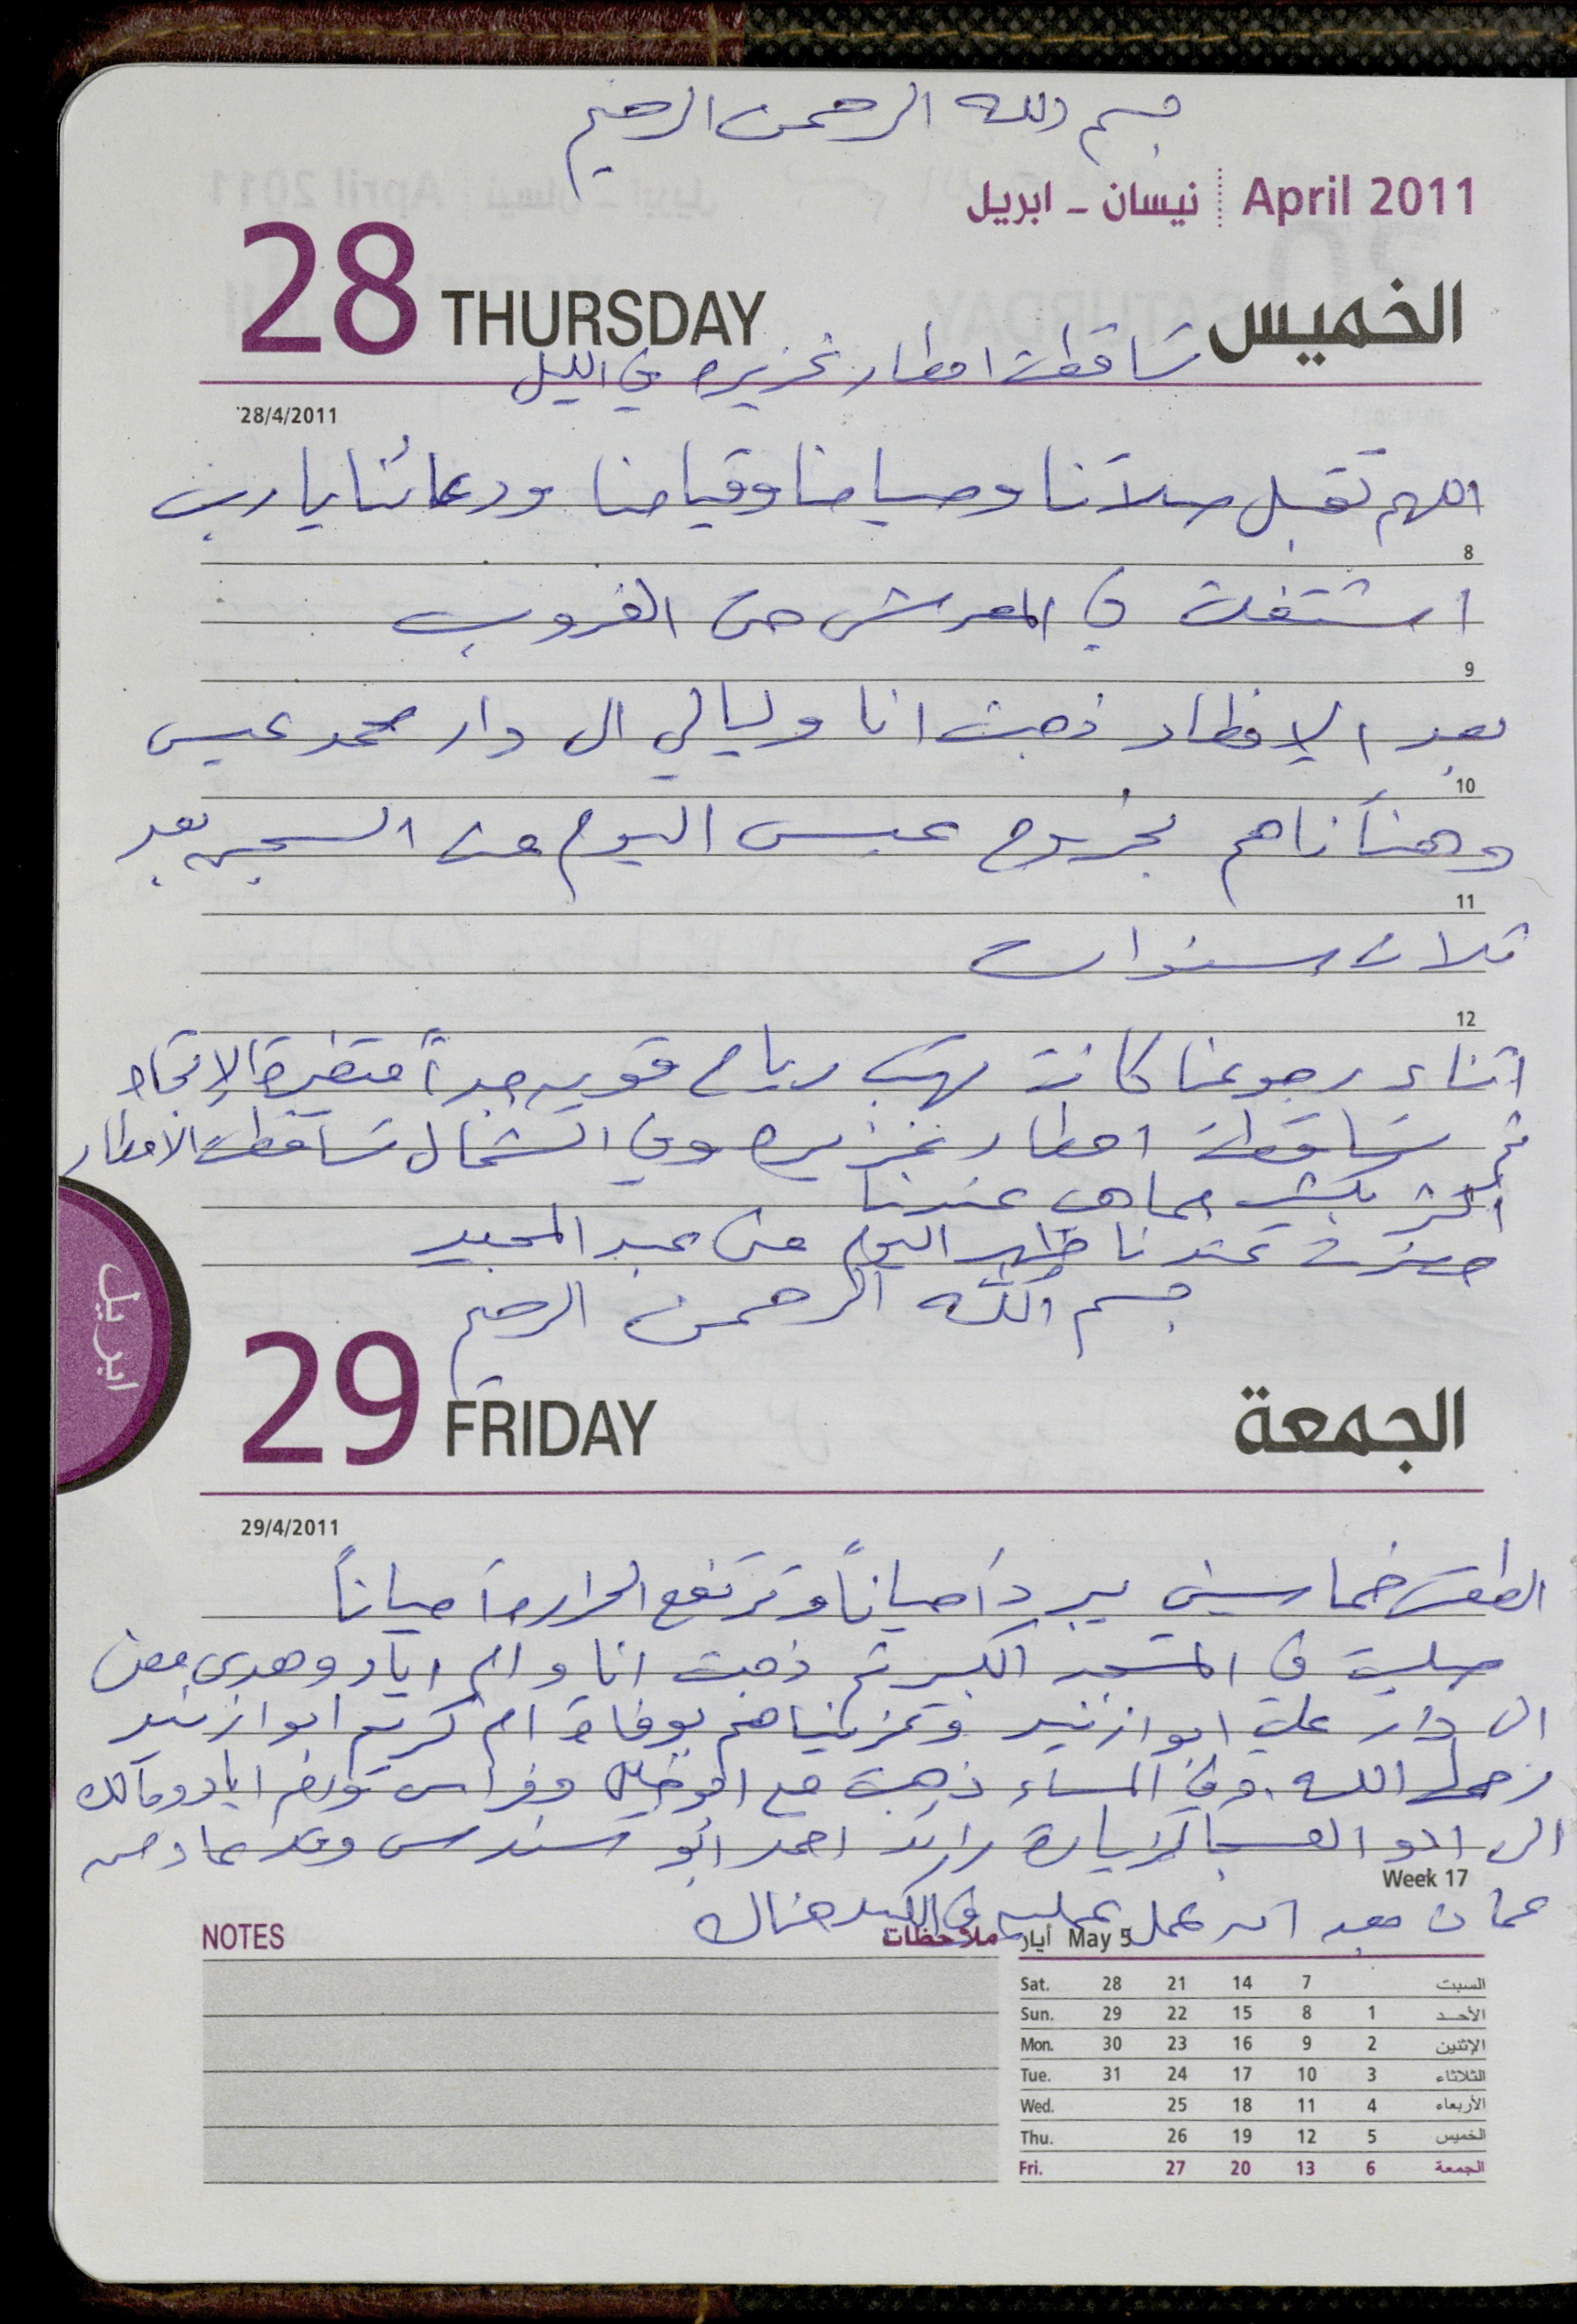 بسم الله الرحمن الرحيم
April 2011 نيسان - ابريل
28 THURSDAY الخميس
تساقطت امطار غزيره في الليل
28/4/2011
اللهم تقبل صلاتنا وصيامنا وقيامنا ودعائنا يا رب
8
اشتغلت في المعرش حتى الغروب
9
بعد الإفطار ذهبت انا وليالي الى دار محمد عيسى
10
وهنأناهم بخروج عيسى اليوم من السجن بعد
11
ثلاث سنوات
12
اثناء رجوعنا كانت تهب رياح قويه جداً متغيرة الإتجاه
ثم تساقطت امطار غزيره وفي الشمال تساقطت الامطار
اكثر بكثير مما هي عندنا
حضرت عندنا ظهر اليوم منى عبد المجيد
بسم الله الرحمن الرحيم
ابريل
29 FRIDAY الجمعة
29/4/2011
الطقس خماسيني يبرد أحياناً وترتفع الحراره أحياناً
صليت في المسجد الكبير ثم ذهبت انا وام اياد وهدى معن
الى دار علي ابو ازنيد وعزيناهم بوفاة ام كريم ابو ازنيد
رحمها الله. وفي المساء ذهبت مع ابو خليل وفراس اياد ومالك
الى ابو العسجا لزيارة رائد احمد ابو سندس وقد عاد من
Week 17
عمان بعد ان عمل عمليه في الكبد هناك
NOTES ملاحظات
May 5 أيار
Sat. 28 21 14 7 السبت
Sun. 29 22 15 8 1 الأحد
Mon. 30 23 16 9 2 الإثنين
Tue. 31 24 17 10 3 الثلاثاء
Wed. 25 18 11 4 الأربعاء
Thu. 26 19 12 5 الخميس
Fri. 27 20 13 6 الجمعة